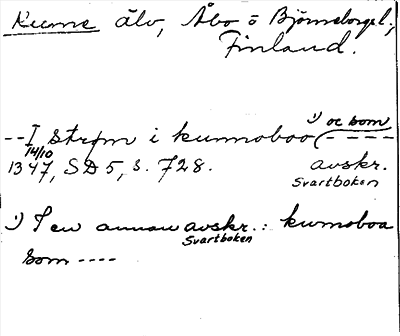 Kumo älv, Åbo o Björneborgs l.,
Finland.
1) oc bom
-- I strøm i kumoboo (- - - -
14/10
1347, SD 5, s. 728. avskr.
Svartboken
1) I en annan avskr.: kumoboa
Svartboken
bom ----